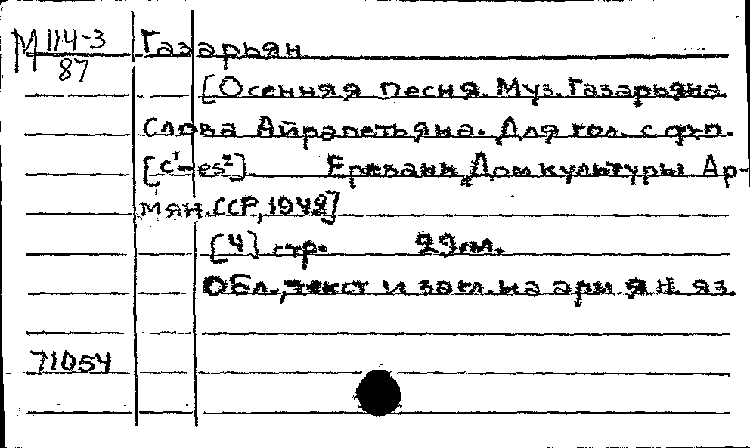 М 114-3
87
Газарьян
[Осенняя песня. Муз. Газарьяна.
Слова Айрапетьяна. Для гол. с фп.
[c¹-es²] Ереван, Дом культуры Ар-
мян. ССР, 1948]
[4] стр. 29 см.
Обл., текст и загл. на армян. яз.
71054